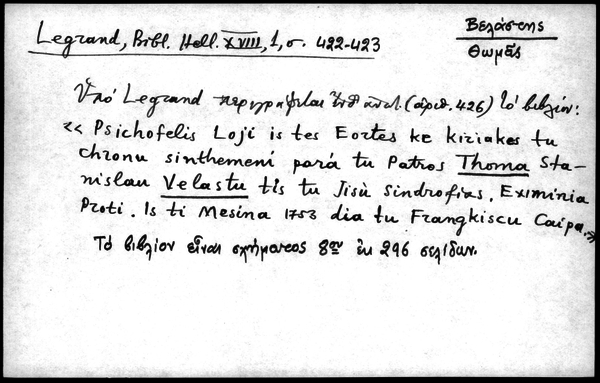 Βελάστης
Θωμᾶς
Legrand, Bibl. Hell. XVIII, 1, σ. 422-423
Ὑπό Legrand περιγράφεται (ἀριθ. 426) τό βιβλίον:
« Psichofelis Loji is tes Eortes ke kiriakes tu
chronu sinthemeni pará tu Patros Thoma Sta-
nislau Velastu tis tu Jisù Sindrofias. Eximinia
Proti. Is ti Mesina 1753 dia tu Frangkiscu Caipa.»
Τό βιβλίον εἶναι σχήματος 8ου ἐκ 296 σελίδων.